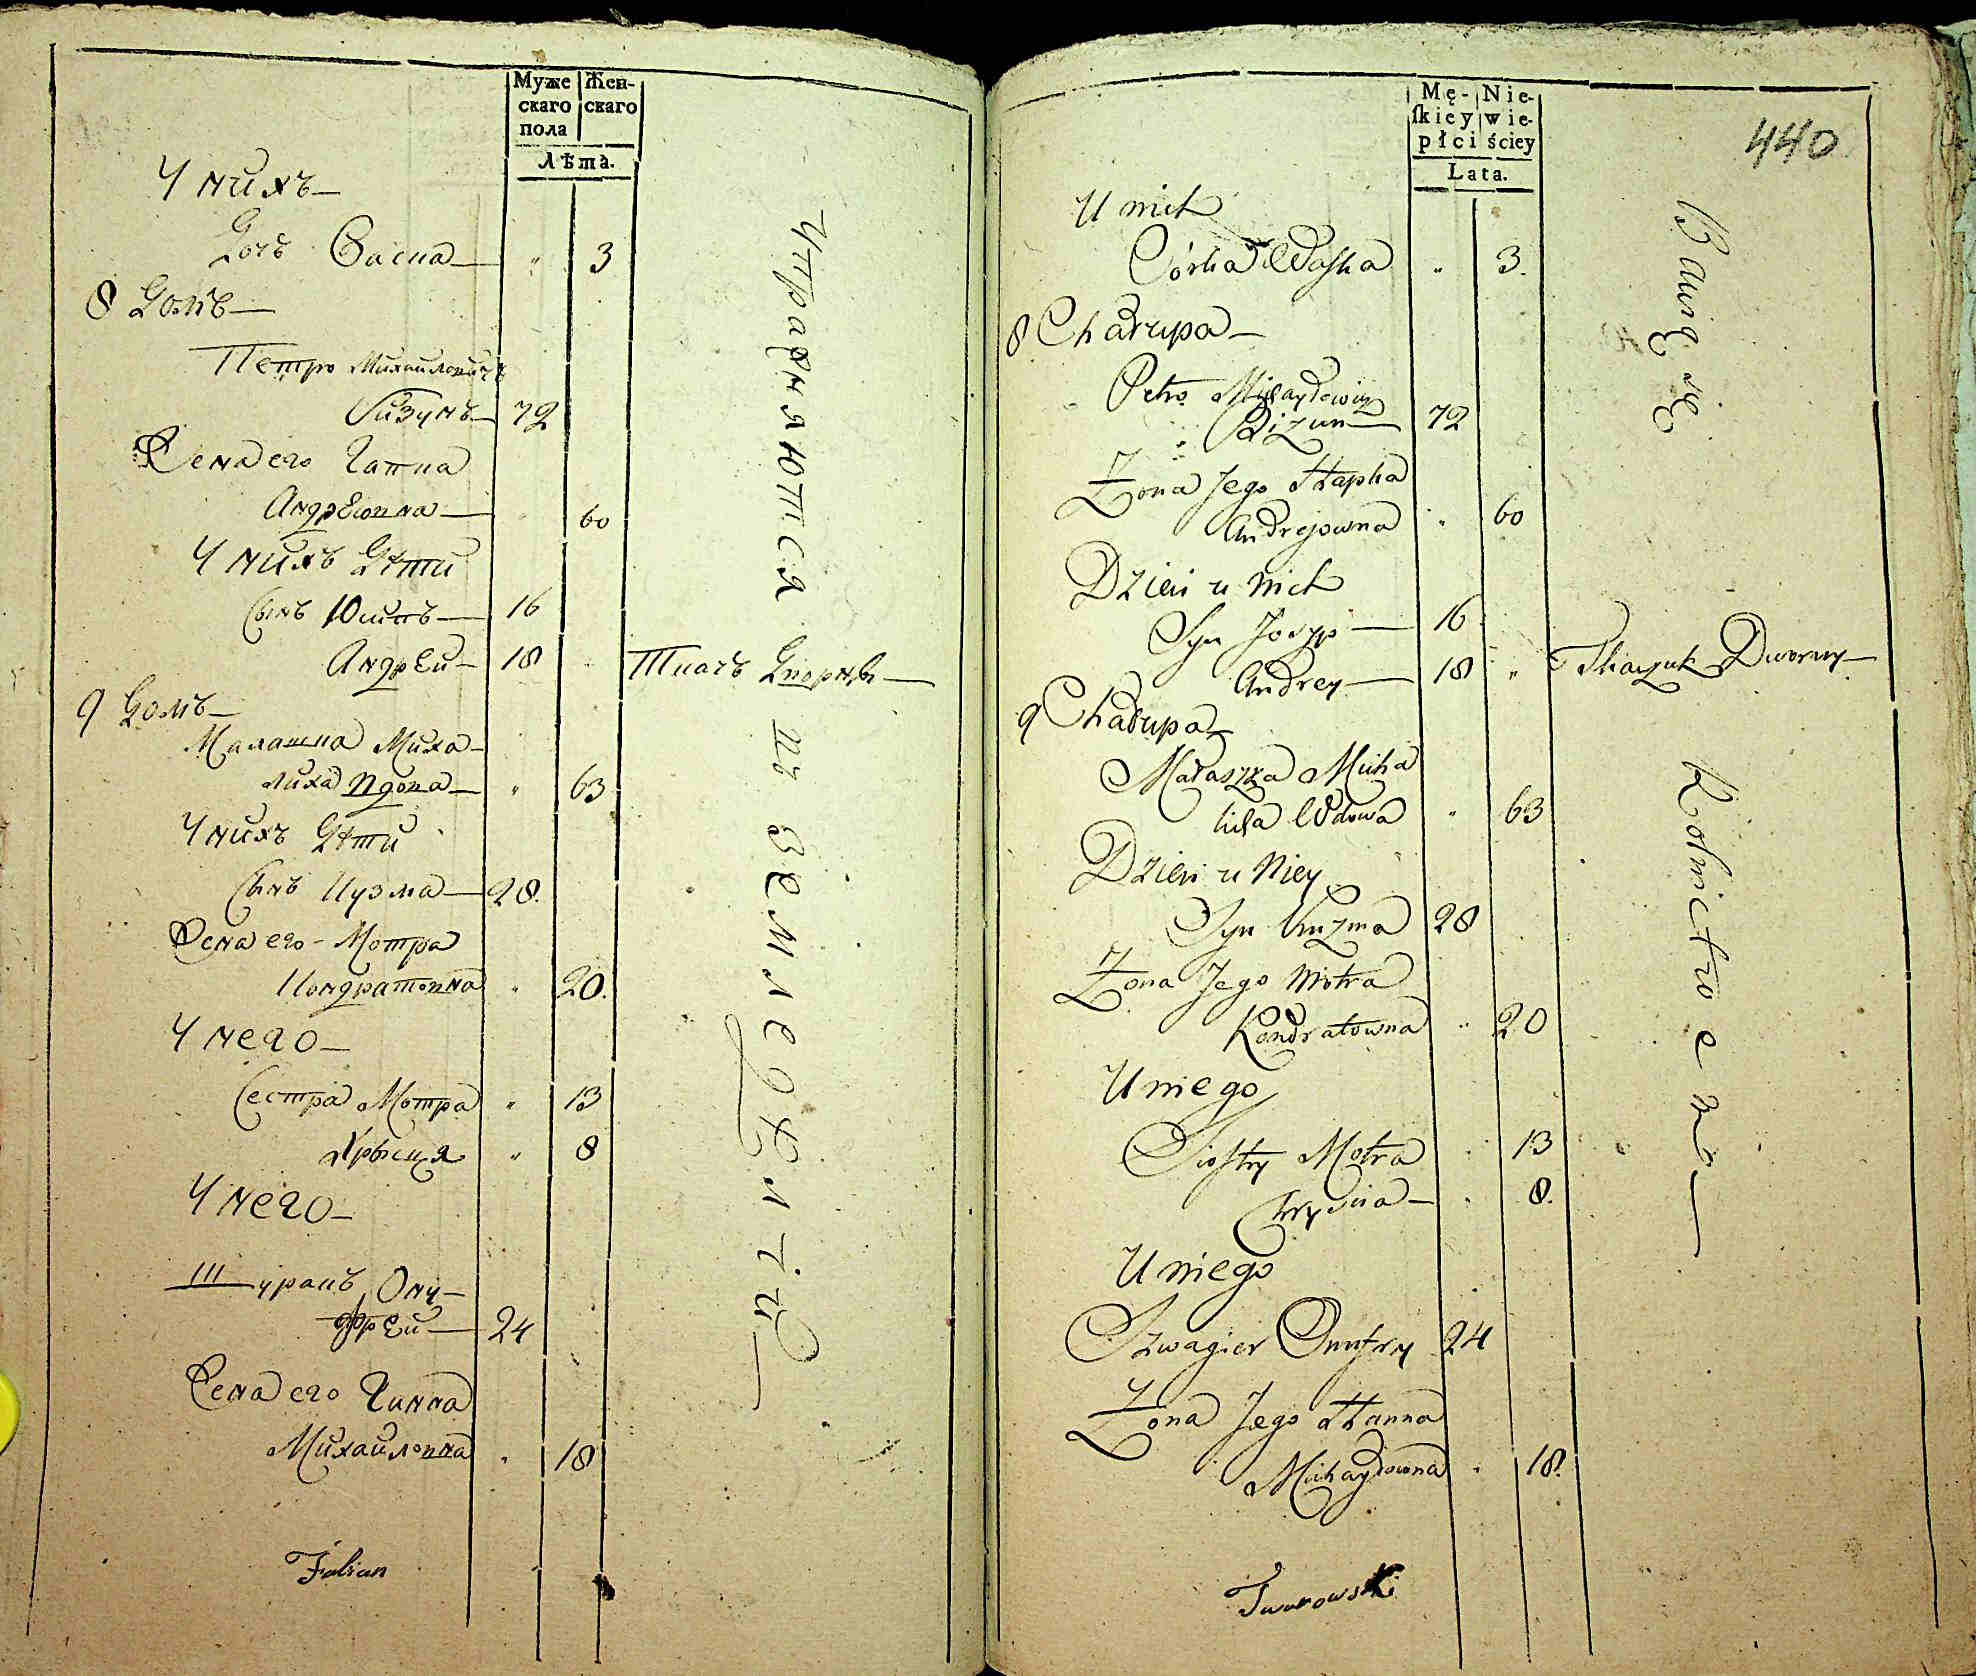 Муже
скаго
пола
Жен-
скаго
Лѣта.
У нихъ
Дочъ Васка " 3
8 Домъ
Петро Михаиловичъ
Бизунъ 72
Жена его Гапка
Андрѣювна 60
У нихъ Дѣти
Сынъ Юсипъ 16
Андрѣй 18 " Ткачъ Дворный
9 Домъ
Малашка Миха-
лиха вдова " 63
У нихъ Дѣти
Сынъ Кузма 28.
Жена его Мотра
Кондратовна " 20.
У него
Сестра Мотра " 13
Хрысця " 8
У него
Шуракъ Ону-
фрѣй 24
Жена его Ганна
Михайловна " 18
Fabian
Упражняются въ земледѣлiи
Mę-
skiey
płci
Nie-
wie-
ściey
Lata.
440
U nich
Córka Waska " 3.
8 Chałupa
Petro Michayłowicz
Bizun 72
Żona Jego Hapka
Andrejowna " 60
Dzieci u nich
Syn Josyp 16
Andrey 18 " Tkaczuk Dworny
9 Chałupa
Małaszka Micha
licha Wdowa " 63
Dzieci u Niey
Syn Kuzma 28
Żona Jego Motra
Kondratowna " 20
U niego
Siostry Motra " 13
Chryscia " 8.
U niego
Szwagier Onufry 24
Żona Jego Hanna
Michayłowna " 18.
Tworowski
Bawią się Rolnictwem